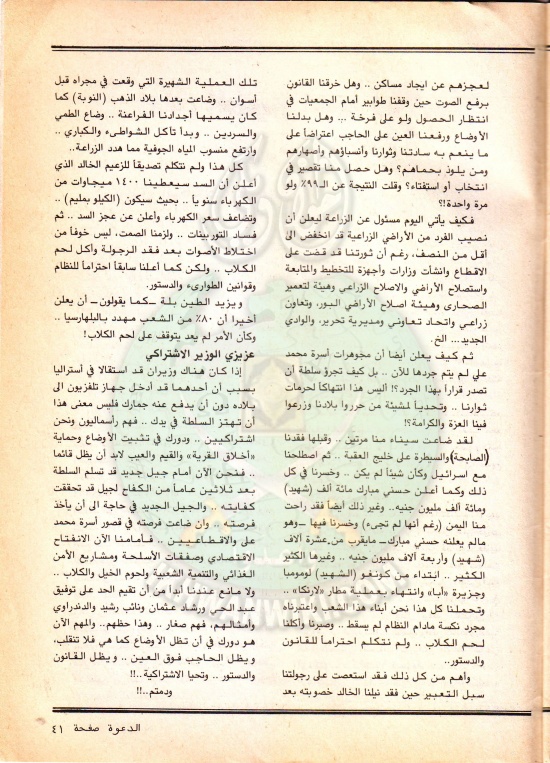 لعجزهم عن ايجاد مساكن .. وهل خرقنا القانون
برفع الصوت حين وقفنا طوابير أمام الجمعيات في
انتظار الحصول ولو على فرخة ... وهل بدلنا
الأوضاع ورفعنا العين على الحاجب اعتراضاً على
ما ينعم به سادتنا وثوارنا وأنسباؤهم وأصهارهم
ومن يلوذ بحماهم؟ وهل حصل منا تقصير في
انتخاب أو استفتاء؟ وقلت النتيجة عن الـ٩٩٪ ولو
مرة واحدة!؟
فكيف يأتي اليوم مسئول عن الزراعة ليعلن أن
نصيب الفرد من الأراضي الزراعية قد انخفض الى
أقل من النصف، رغم أن ثورتنا قد قضت على
الاقطاع وانشأت وزارات وأجهزة للتخطيط والمتابعة
واستصلاح الأراضي والاصلاح الزراعي وهيئة لتعمير
الصحارى وهيئة اصلاح الأراضي البور، وتعاون
زراعي واتحاد تعاوني ومديرية تحرير، والوادي
الجديد... الخ.
ثم كيف يعلن أيضا أن مجوهرات أسرة محمد
علي لم يتم جردها للآن .. بل كيف تجرؤ سلطة أن
تصدر قراراً بهذا الجرد؟! أليس هذا انتهاكاً لحرمات
ثوارنا .. وتحدياً لمشيئة من حرروا بلادنا وزرعوا
فينا العزة والكرامة؟!
لقد ضاعت سيناء منا مرتين .. وقبلها فقدنا
(الصابحة) والسيطرة على خليج العقبة .. ثم اصطلحنا
مع اسرائيل وكأن شيئاً لم يكن .. وخسرنا في كل
ذلك وكما أعلن حسني مبارك مائة ألف (شهيد)
ومائة ألف مليون جنيه.. وغير ذلك أيضا فقد راحت
منا اليمن (رغم أنها لم تجىء) وخسرنا فيها ـ وهو
مالم يعلنه حسني مبارك ـ مايقرب من عشرة آلاف
(شهيد) وأربعة آلاف مليون جنيه .. وغيرها الكثير
الكثير .. ابتداء من كونغو (الشهيد) لومومبا
وجزيرة «أبا» وانتهاء بعملية مطار «لارنكا» ..
وتحملنا كل هذا نحن أبناء هذا الشعب واعتبرناه
مجرد نكسة مادام النظام لم يسقط .. وصبرنا وأكلنا
لحم الكلاب .. ولم نتكلم احتراماً للقانون
والدستور..
وأهم من كل ذلك فقد استعصت على رجولتنا
سبل التعبير حين فقد نيلنا الخالد خصوبته بعد
تلك العملية الشهيرة التي وقعت في مجراه قبل
أسوان .. وضاعت بعدها بلاد الذهب (النوبة) كما
كان يسميها أجدادنا الفراعنة .. وضاع الطمي
والسردين .. وبدأ تآكل الشواطىء والكباري ..
وارتفع منسوب المياه الجوفية مما هدد الزراعة..
كل هذا ولم نتكلم تصديقاً للزعيم الخالد الذي
أعلن أن السد سيعطينا ١٤٠٠ ميجاوات من
الكهرباء سنوياً .. بحيث سيكون (الكيلو بمليم) ..
وتضاعف سعر الكهرباء وأعلن عن عجز السد .. ثم
فساد التوربينات .. ولزمنا الصمت، ليس خوفاً من
اختلاط الأصوات بعد فقد الرجولة وأكل لحم
الكلاب .. ولكن كما أعلنا سابقاً احتراماً للنظام
وقوانين الطوارىء والدستور.
ويزيد الطين بلة ـ كما يقولون ـ أن يعلن
أخيرا أن ٨٠٪ من الشعب مهدد بالبلهارسيا ..
وكأن الأمر لم يعد يتوقف على لحم الكلاب!
عزيزي الوزير الاشتراكي
إذا كان هناك وزيران قد استقالا في أستراليا
بسبب أن أحدهما قد أدخل جهاز تلفزيون الى
بلاده دون أن يدفع عنه جمارك فليس معنى هذا
أن تهتز السلطة في يدك .. فهم رأسماليون ونحن
اشتراكيين .. ودورك في تثبيت الأوضاع وحماية
«أخلاق القرية» والقيم والعيب لابد أن يظل قائما
.. فنحن الآن أمام جيل جديد قد تسلم السلطة
بعد ثلاثين عاماً من الكفاح لجيل قد تحققت
كفايته .. والجيل الجديد في حاجة الى أن يأخذ
فرصته .. وان ضاعت فرصته في قصور أسرة محمد
على والاقطاعيين .. فأمامنا الآن الانفتاح
الاقتصادي وصفقات الأسلحة ومشاريع الأمن
الغذائي والتنمية الشعبية ولحوم الخيل والكلاب ..
ولا مانع عندنا أبداً من أن تقيم الحد على توفيق
عبد الحي ورشاد عثمان ونائب رشيد والدندراوي
وأمثالهم، فهم صغار .. وهذا حظهم.. والمهم الآن
هو دورك في أن تظل الأوضاع كما هي فلا تنقلب،
ويظل الحاجب فوق العين .. ويظل القانون
والدستور .. وتحيا الاشتراكية ..!!
ودمتم..!!
الدعوة صفحة ٤١